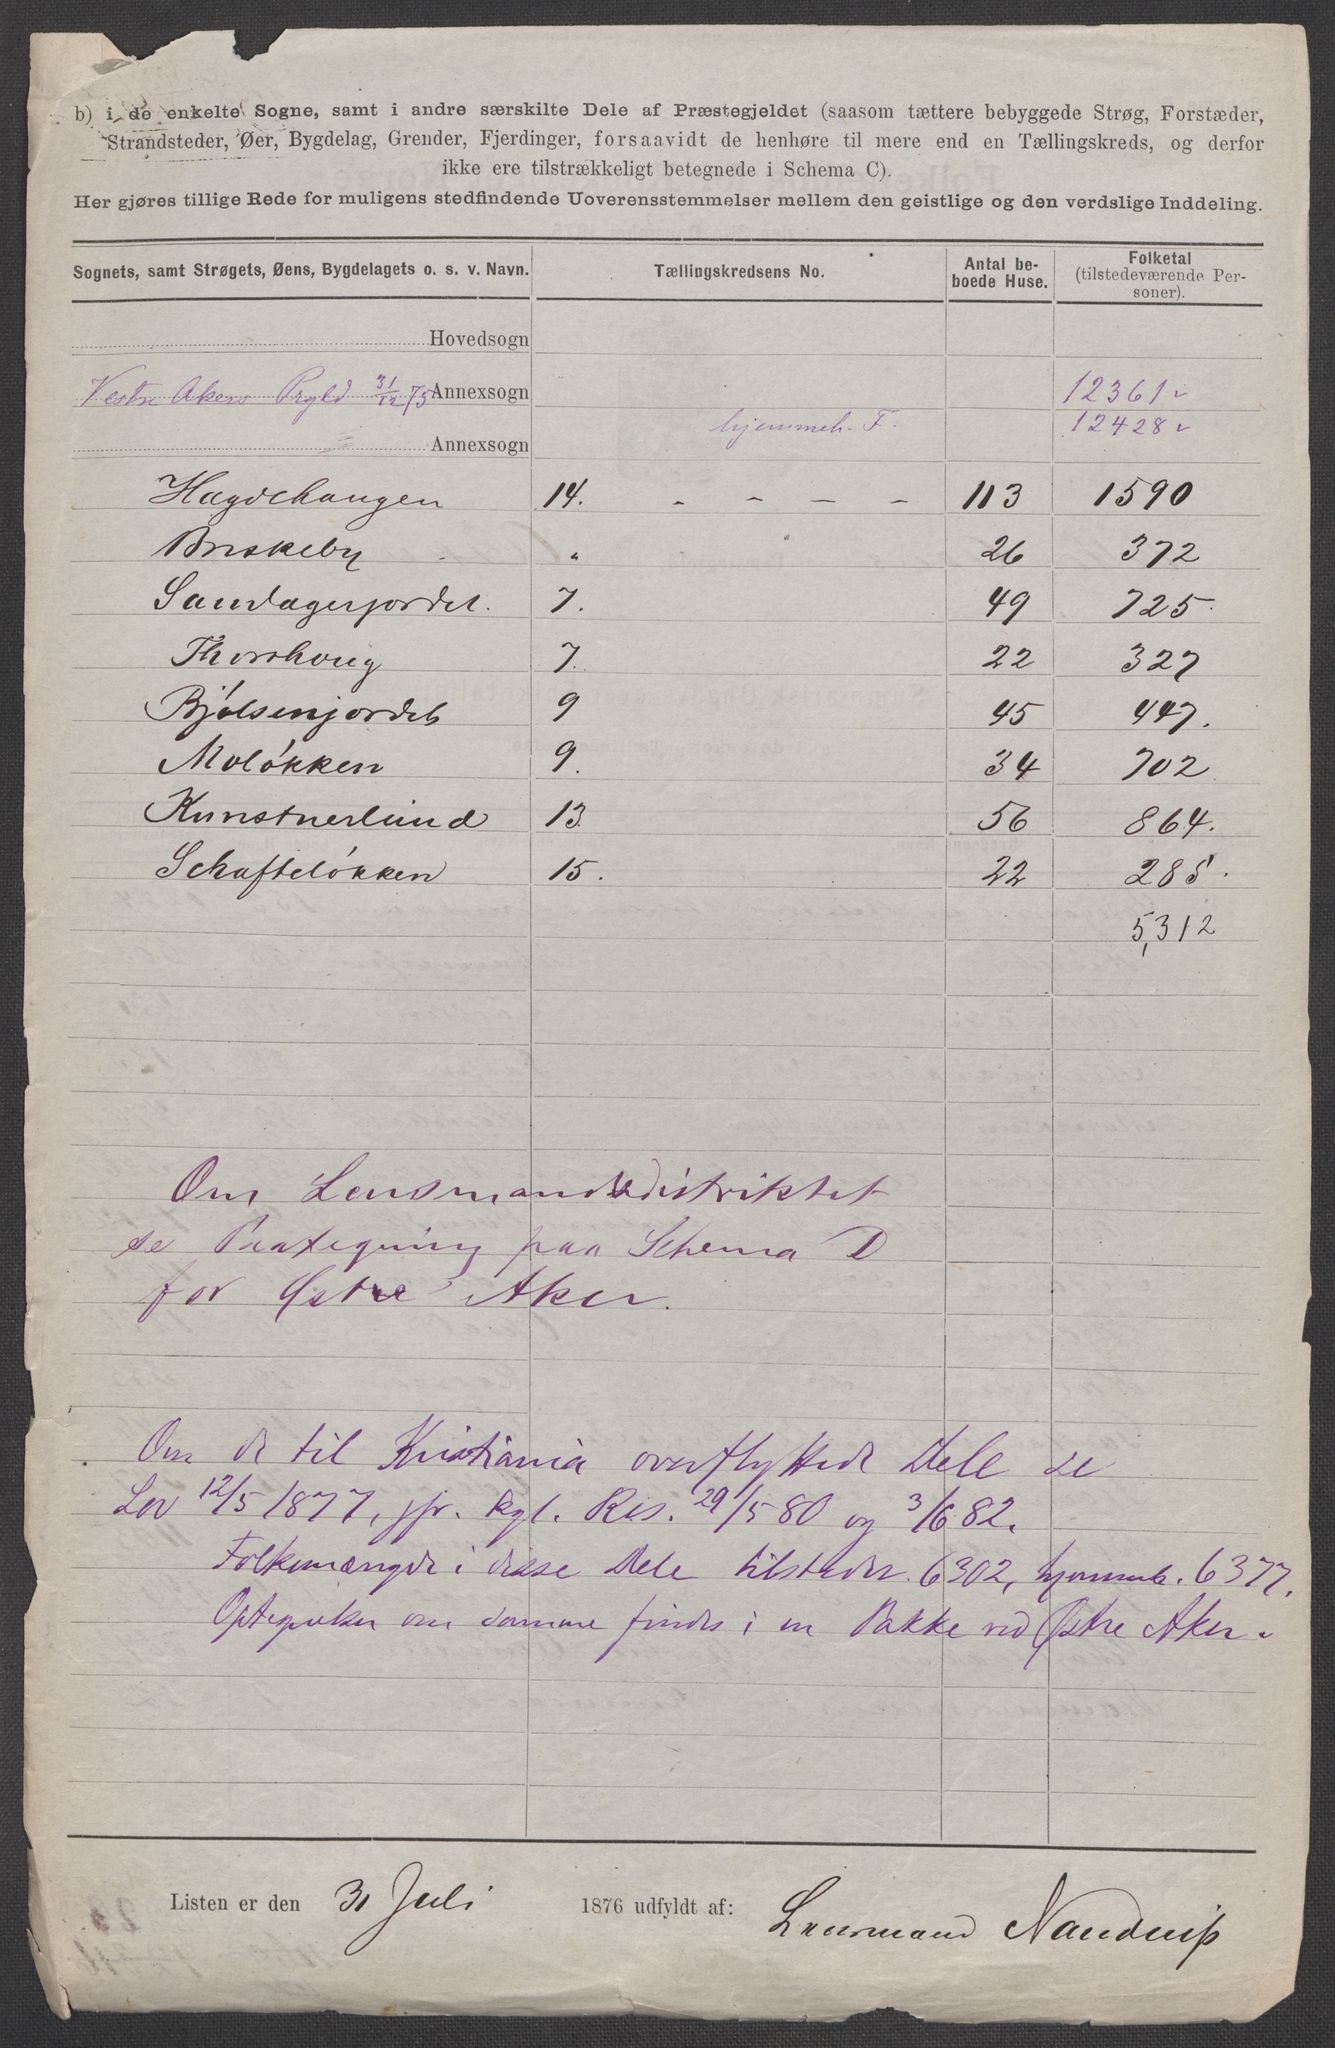 b) i de enkelte Sogne, samt i andre særskilte Dele af Præstegjeldet (saasom tættere bebyggede Strøg, Forstæder,
Strandsteder, Øer, Bygdelag, Grender, Fjerdinger, forsaavidt de henhøre til mere end en Tællingskreds, og derfor
ikke ere tilstrækkeligt betegnede i Schema C).
Her gjøres tillige Rede for muligens stedfindende Uoverensstemmelser mellem den geistlige og den verdslige Inddeling.
Sognets, samt Strøgets, Øens, Bygdelagets o. s. v. Navn. Tællingskredsens No. Antal beboede Huse. Folketal (tilstedeværende Personer).
Hovedsogn
Vestre Akers Prgld 31/12 75 Annexsogn 12361
Annexsogn hjemmeh. F. 12428
Hægdehaugen 14. - - - - 113 1590
Briskeby " " 26 372
Sandagerjordet. 7. 49 725
Thorshoug 7. 22 327
Bjølsenjordet 9 45 447.
Moløkken 9. 34 702
Kunstnerlund 13. 56 864.
Schafteløkken 15. 22 285.
5,312
Om Lensmandsdistriktet
se Paategning paa Schema D
for Østre Aker.
Om de til Kristiania overflyttede Dele se
Lov 12/5 1877, jfr. kgl. Res. 29/5 80 og 3/6 82.
Folkemængde i disse Dele tilstedev. 6302, hjemmeh. 6377.
om samme findes i en Pakke ved Østre Aker.
Listen er den 31 Juli 1876 udfyldt af: Lensmand Nandrup